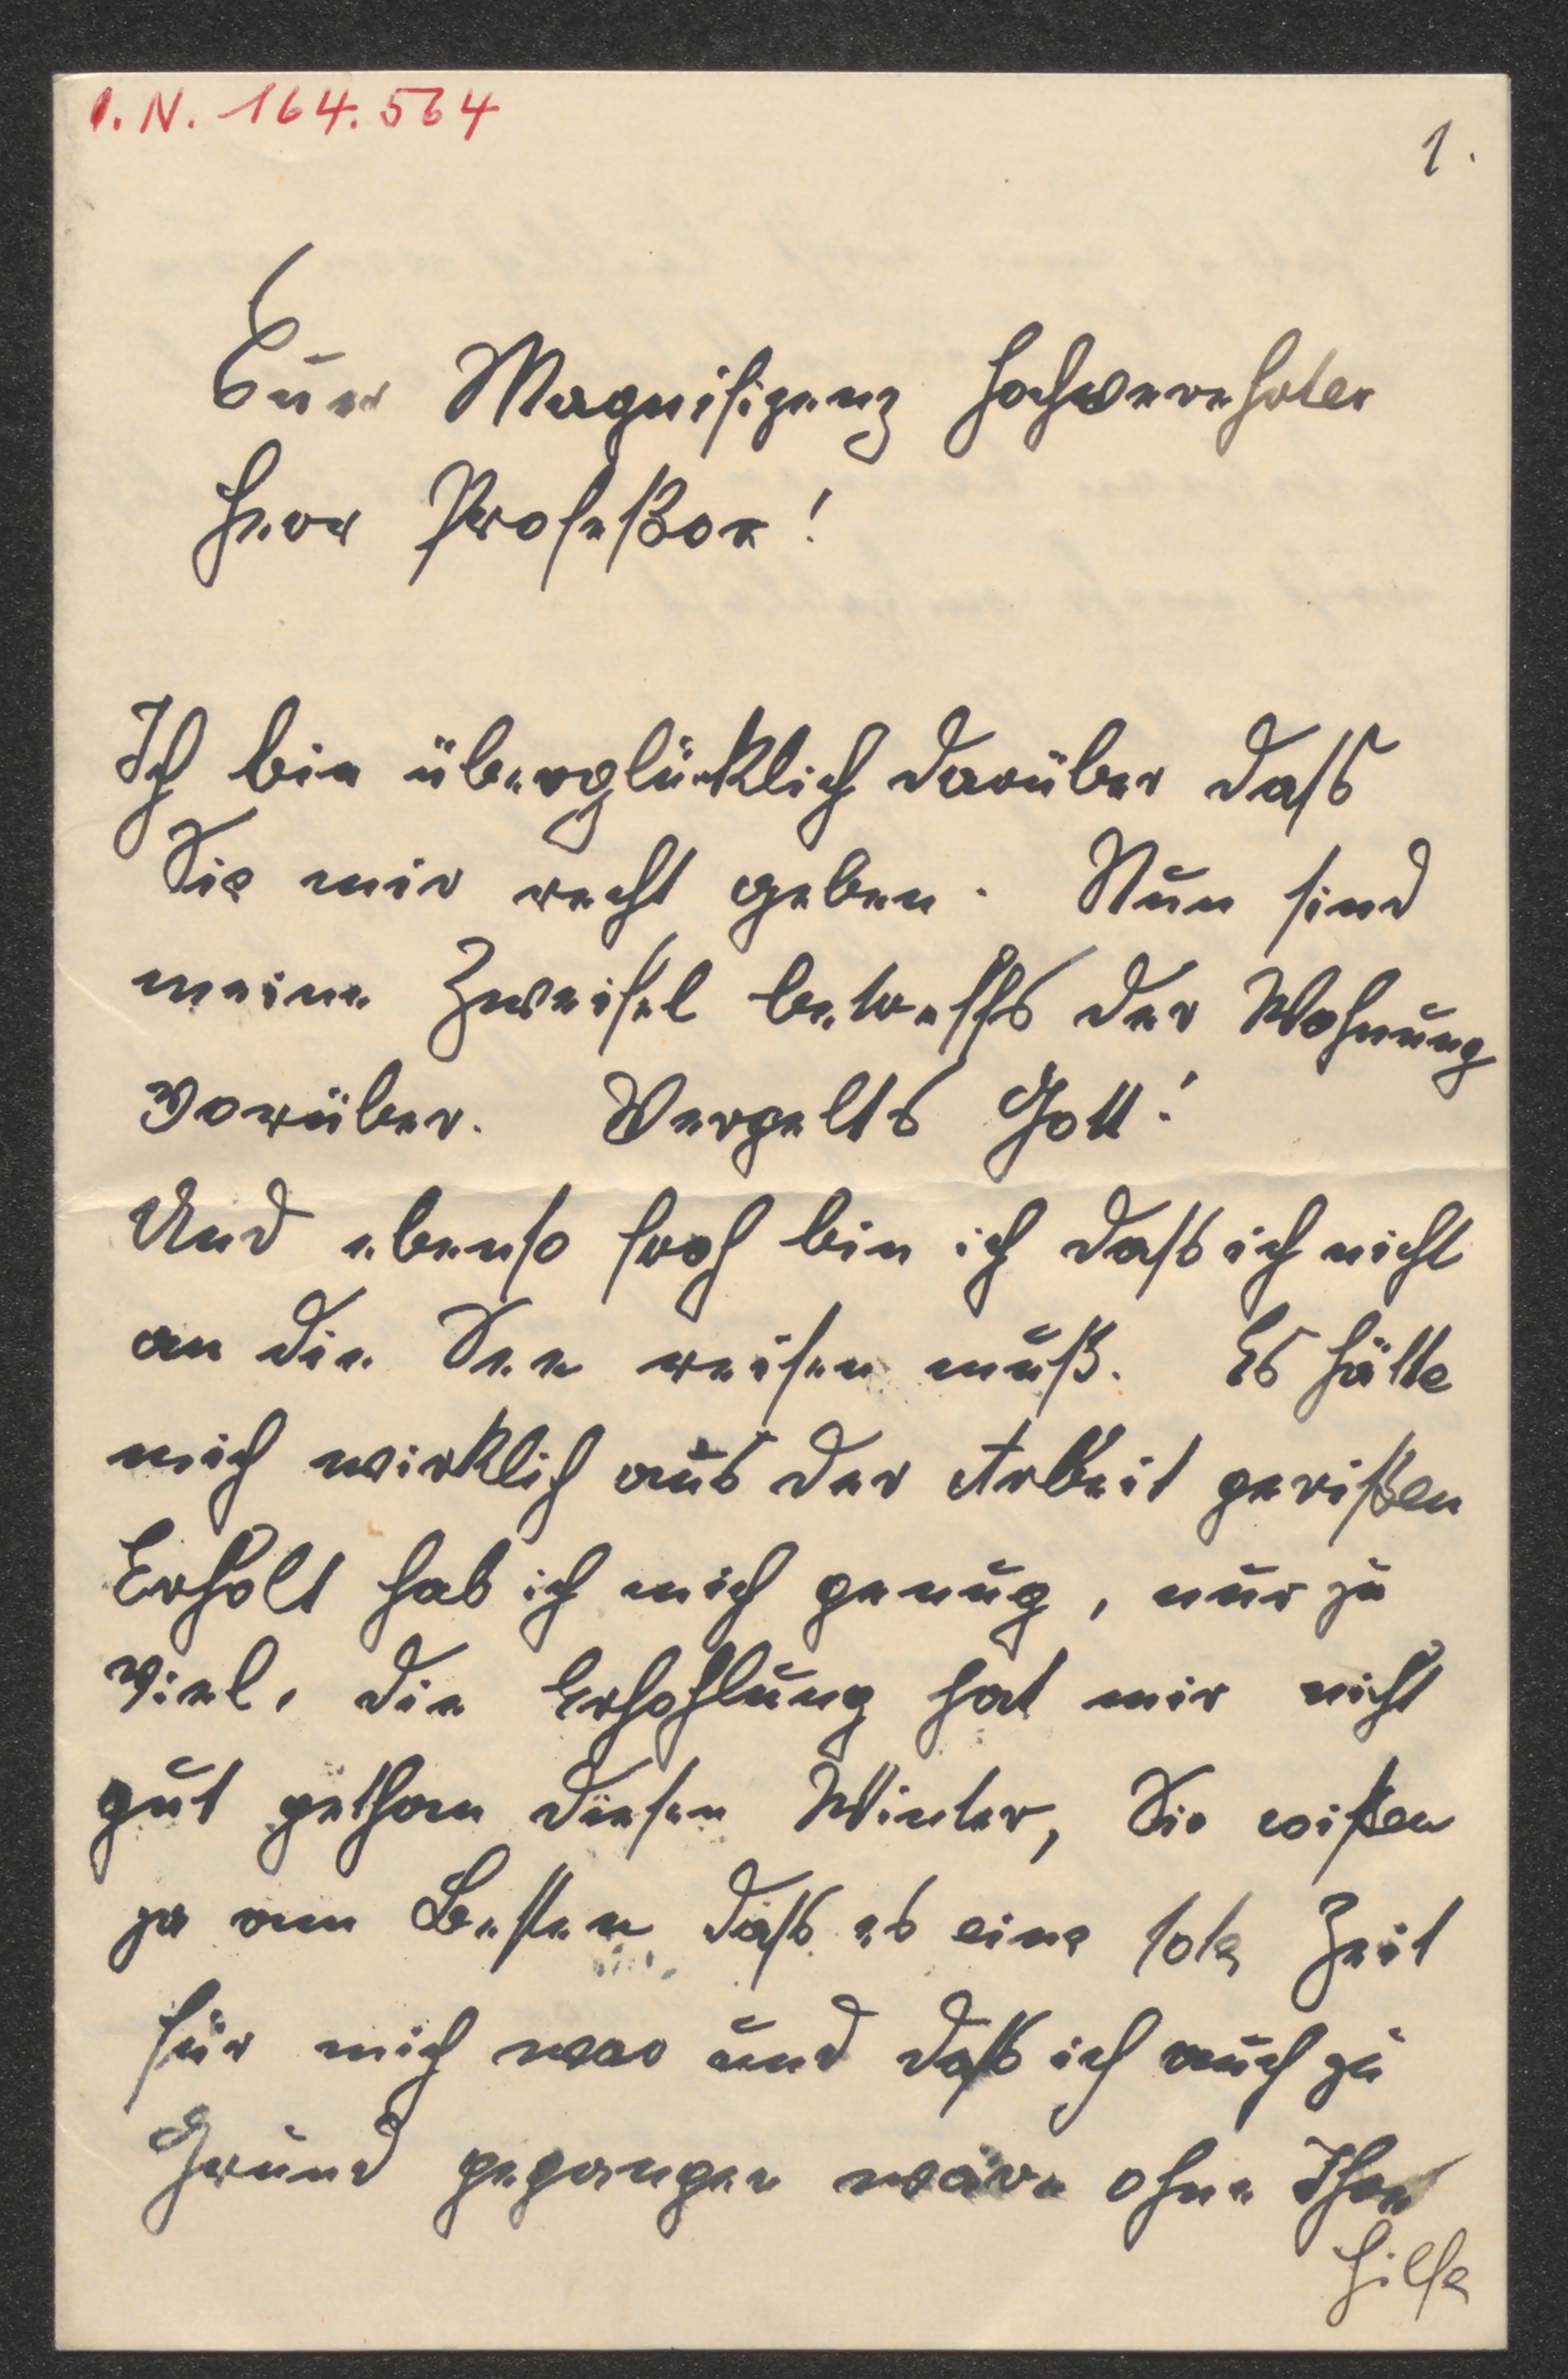 I.N. 164.564
1.
Euer Magnifizenz hochverehrter
Herr Profeßor!
Ich bin überglücklich darüber dass
Sie mir recht geben. Nun sind
meine Zweifel betreffs der Wohnung
vorüber. Vergelts Gott!
Und ebenso froh bin ich dass ich nicht
an die See reisen muß. Es hätte
mich wirklich aus der Arbeit gerißen
Erholt hab ich mich genug, nur zu
viel, die Erhohlung hat mir nicht
gut gethan diesen Winter, Sie wißen
ja am Besten dass es eine tote Zeit
für mich war und dass ich auch zu
Grund gegangen wäre ohne Ihre
Hilfe